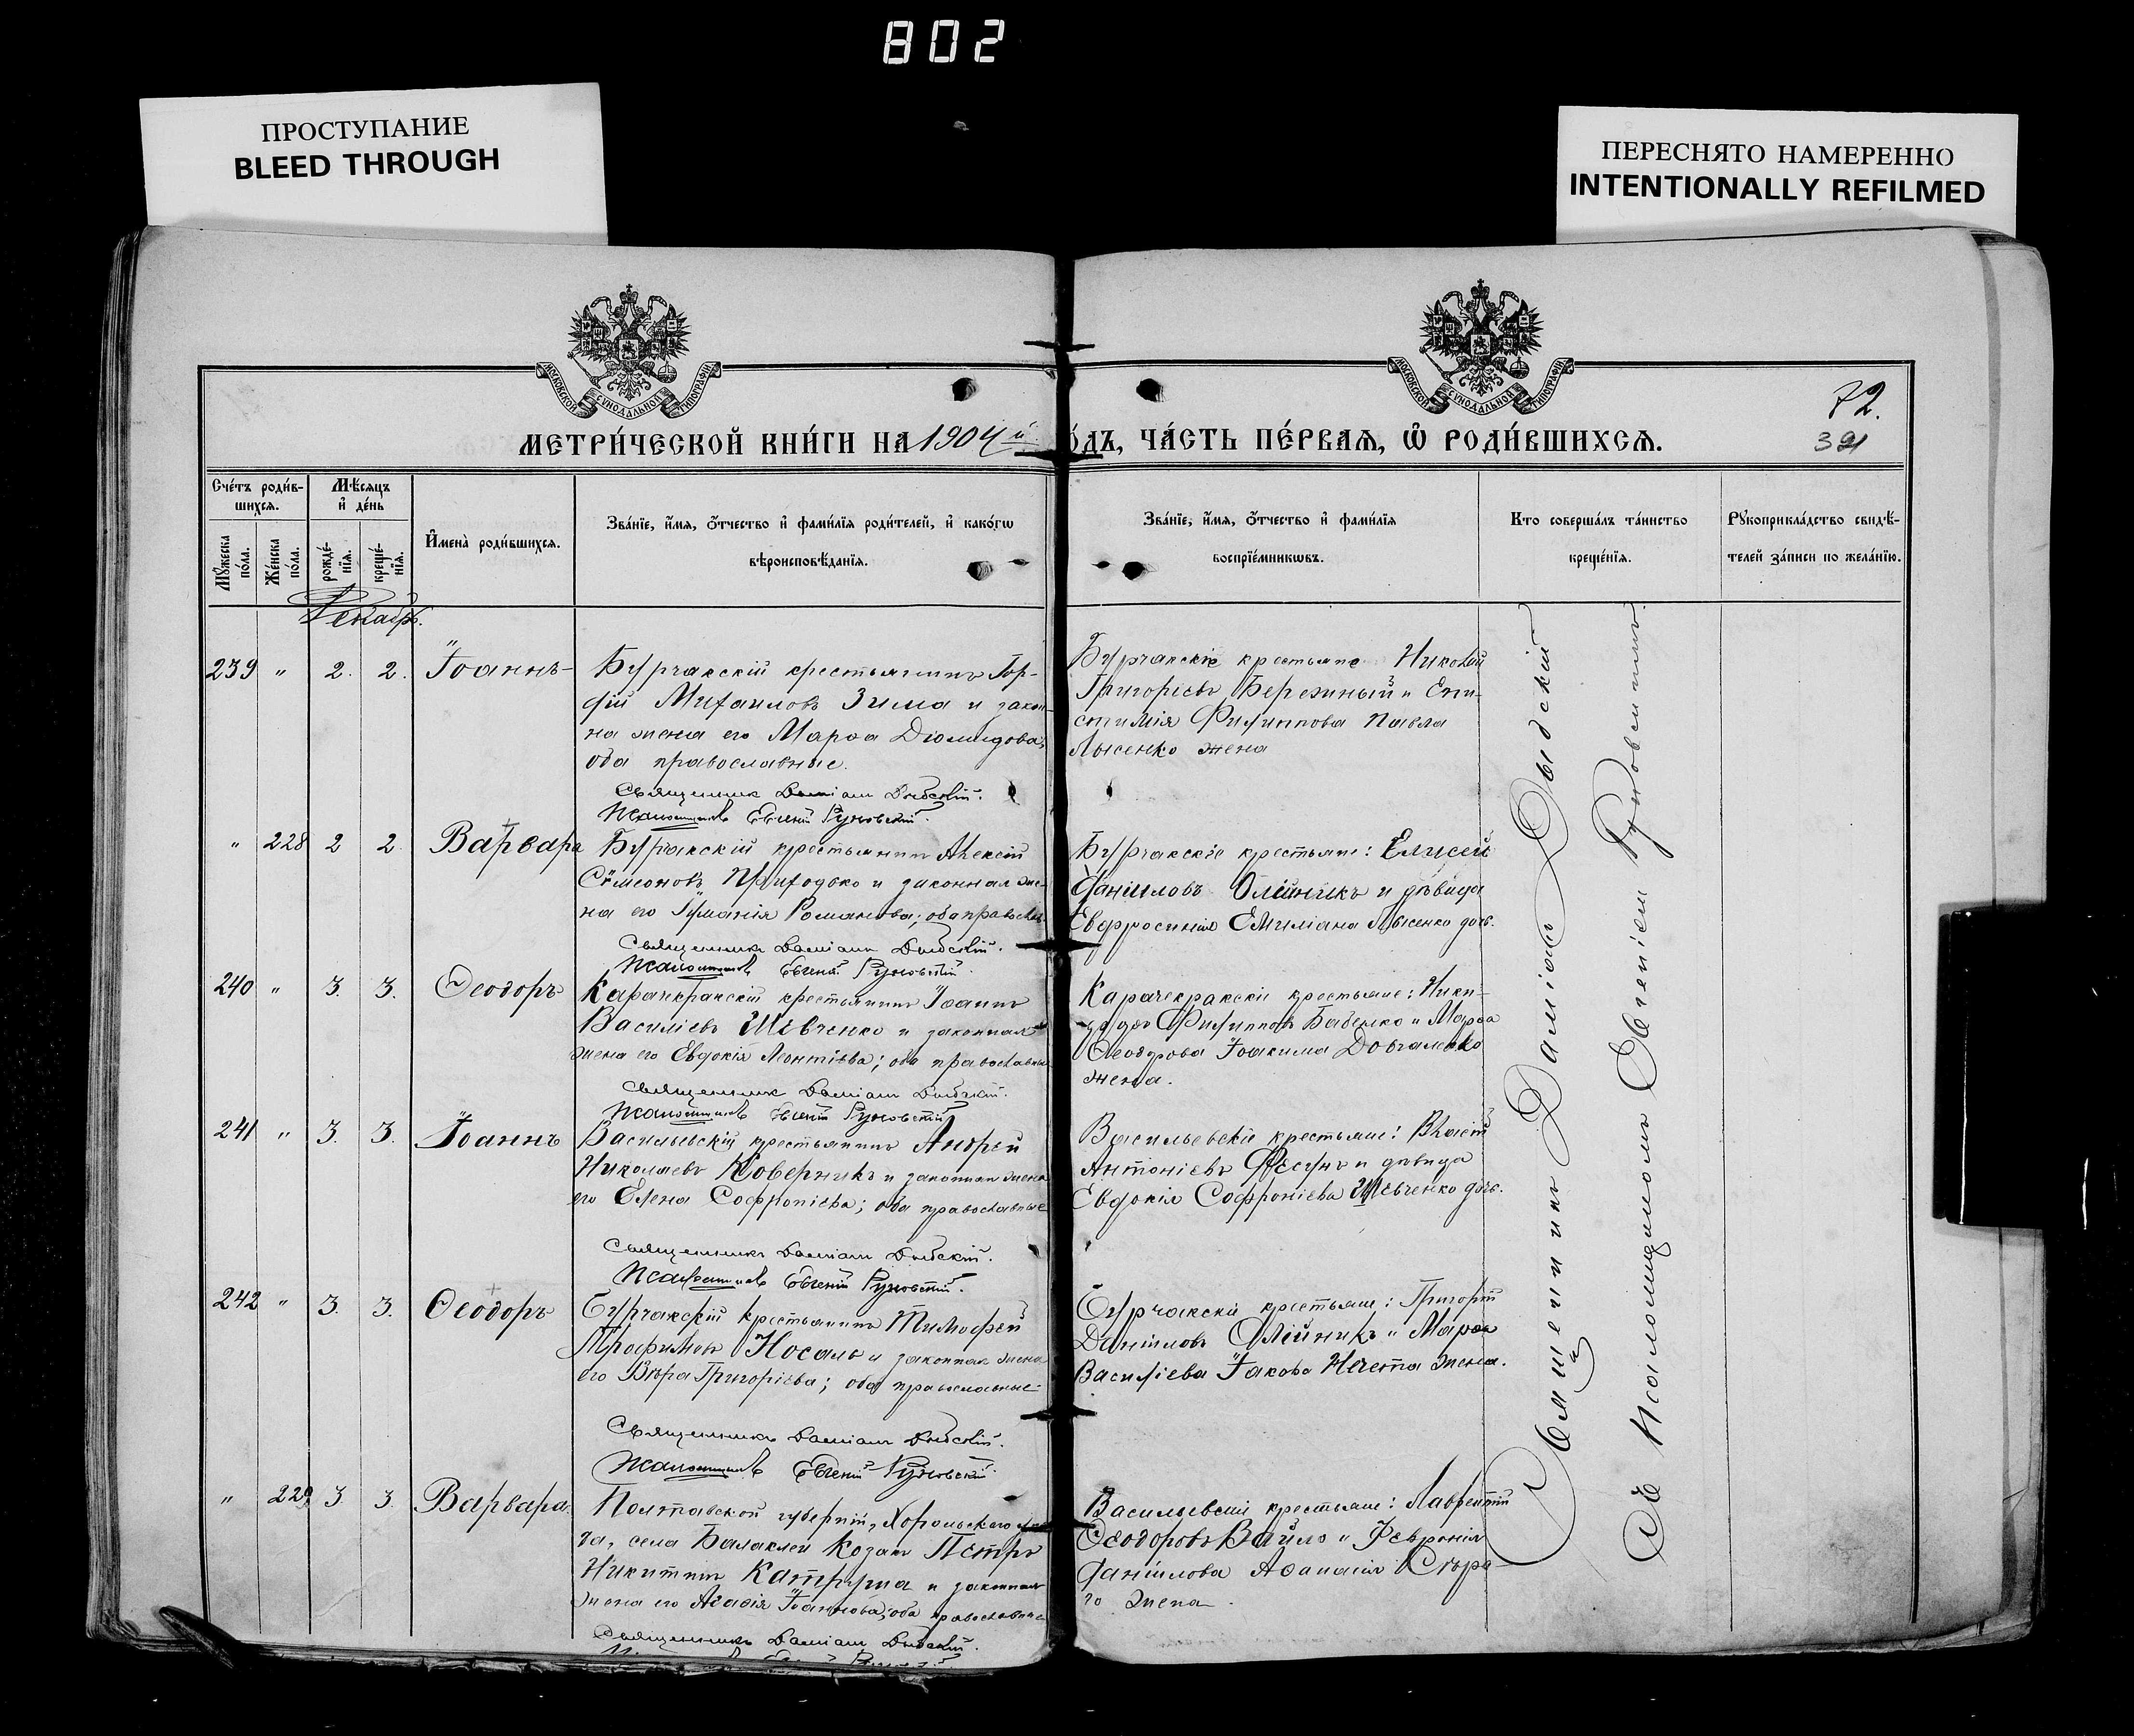 802
ПРОСТУПАНИЕ
BLEED THROUGH
ПЕРЕСНЯТО НАМЕРЕННО
INTENTIONALLY REFILMED
МОСКОВСКОЙ СУНОДАЛЬНОЙ ТИПОГРАФІИ
МОСКОВСКОЙ СУНОДАЛЬНОЙ ТИПОГРАФІИ
72.
391
МЕТРИ́ЧЕСКОЙ КНИ́ГИ НА 1904й
О́ДЪ, ЧА́СТЬ ПЕ́РВАЯ, Ѡ РОДИ́ВШИХСЯ.
Сче́тъ роди́в-
шихся.
Мꙋ́жеска по́ла.
Же́нска по́ла.
Мѣ́сяцъ
и҆ де́нь
рожде́-
нїя.
креще́-
нїя.
И҆мена̀ роди́вшихся.
Зва́нїе, и҆́мя, ѻ҆́тчество и҆ фами́лїя роди́телей, и҆ како́гѡ
вѣроисповѣ́данїя.
Зва́нїе, и҆́мя, ѻ҆́тчество и҆ фами́лїя
воспрїе́мникѡвъ.
Кто соверша́лъ та́инство
креще́нїя.
Рꙋкоприкла́дство свидѣ́-
телей за́писи по жела́нїю.
Декабрь.
239 " 2. 2. Іоаннъ
Бурчакскій крестьянинъ Пор-
фій Михаиловъ Зима и закон-
на жена его Марѳа Діомидова,
оба православные.
Священникъ Даміанъ Дыбскій.
Псаломщикъ Евгеній Руновскій.
Бурчакскіе крестьяне Николай
Григорьевъ Бережный и Епи-
стимія Филиппова Павла
Лысенко жена
" 228 2 2 Варвара
Бурчакскій крестьянинъ Алексій
Сѵмеоновъ Приходько и законная же-
на его Романова; оба православ
Священникъ Даміанъ Дыбскій.
Псаломщикъ Евгеній Руновскій.
Бурчакскіе крестьяне: Елисей
Даніиловъ Олійникъ и дѣвица
Евфросинія Емиліана Лысенко дочь.
240 " 3. 3. Ѳеодоръ
Карачекракскій крестьянинъ Іоаннъ
Василіевъ Шевченко и законная
жена его Евдокія Леонтіева; оба православные
Священникъ Даміанъ Дыбскій.
Псаломщикъ Евгеній Руновскій
Карачекракскіе крестьяне: Ники-
Филипповъ Бабенко и Марѳа
Ѳеодорова Іоакима Довгаленко
жена.
241 " 3. 3. Іоаннъ
Васильевскій крестьянинъ Андрей
Николаевъ Коверникъ и законная жена
его Елена Софроніева; оба православные
Священникъ Даміанъ Дыбскій.
Псаломщикъ Евгеній Руновскій.
Васильевскіе крестьяне: Власій
Антоніевъ Фесунъ и дѣвица
Евдокія Софроніева Шевченко дочь.
242 " 3. 3. Ѳеодоръ
Бурчакскій крестьянинъ Тимофей
Трофимовъ Носаль и законная жена
его Вѣра Григоріева; оба православные
Священникъ Даміанъ Дыбскій.
Псаломщикъ Евгеній Руновскій.
Бурчакскіе крестьяне: Григорій
Даніиловъ Олійникъ и Марѳа
Василіева Іакова Нечета жена.
" 229 3 3. Варвара.
Полтавской губерніи, Хорольскаго уѣз-
да, села Балаклеи козакъ Петръ
Никитинъ Катруша и законная
жена его Агаѳія Іоаннова; оба православные
Священникъ Даміанъ Дыбскій.
Васильевскіе крестьяне: Лаврентій
Ѳеодоровъ Вайло и Февронія
Даніилова Аѳанасія Сѣра-
го жена.
Священникъ Даміанъ Дыбскій
Съ Псаломщикомъ Евгеніемъ Руновскимъ.